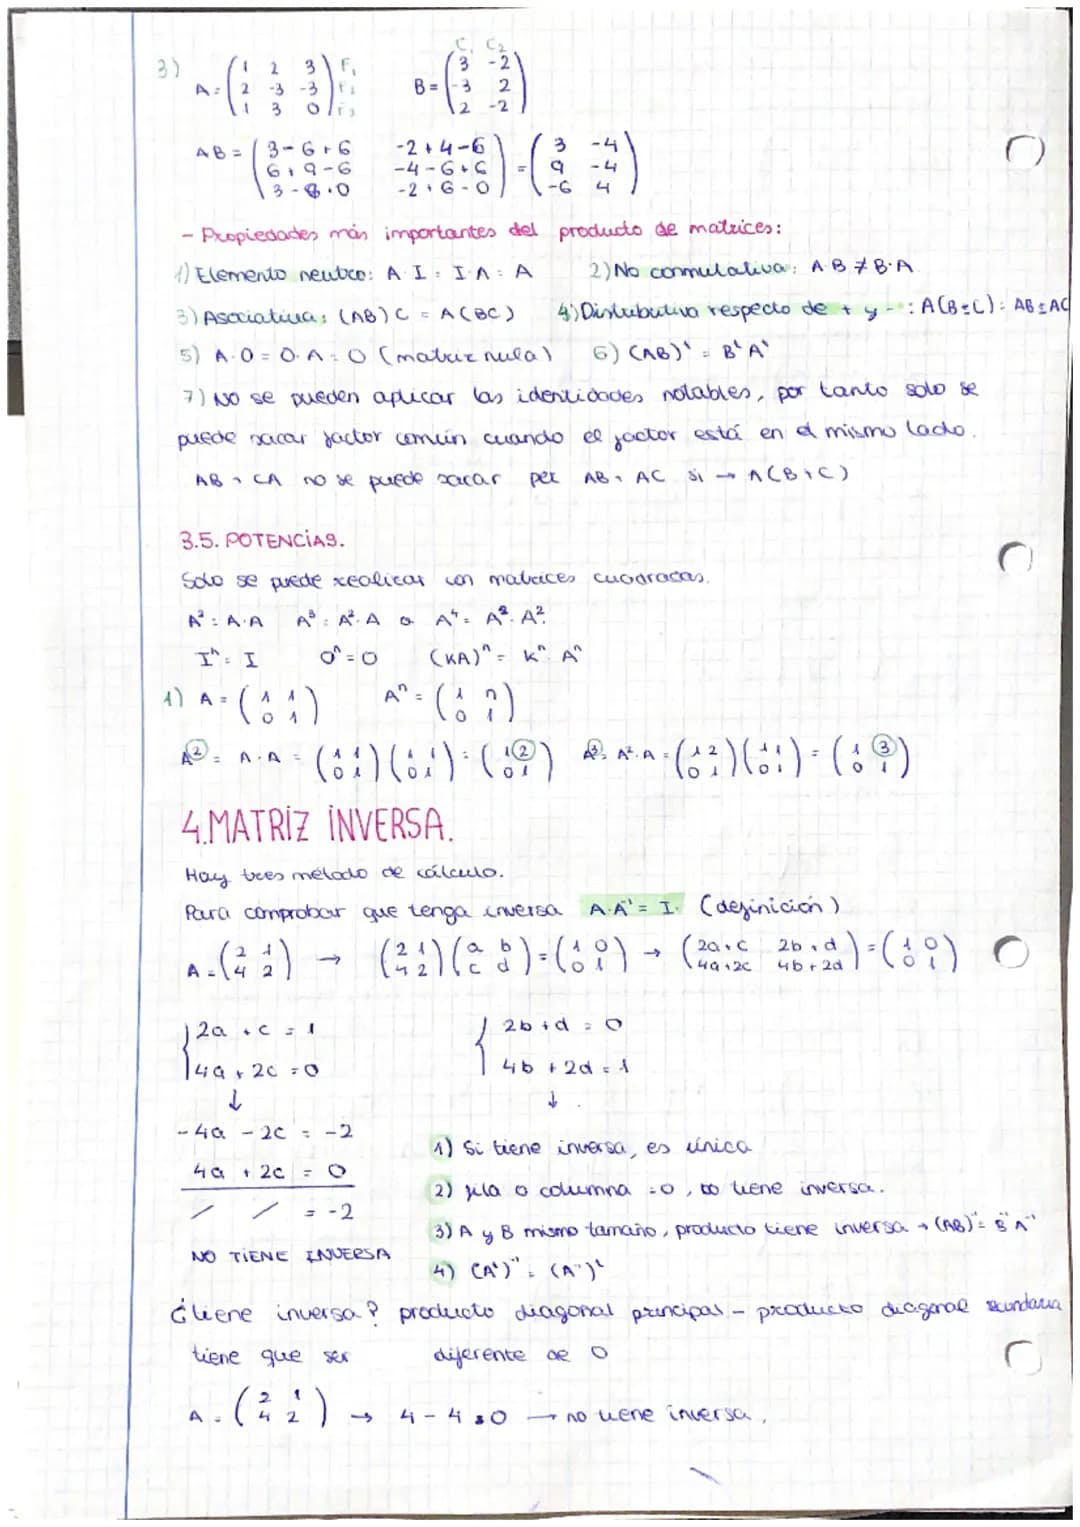 C₁ C₂
3) A = ( 1 2 3 ; 2 -3 -3 ; 1 3 0 ) F₁ F₂ F₃   B = ( 3 -2 ; -3 2 ; 2 -2 )
AB = ( 3-6+6  -2+4-6 ; 6+9-6  -4-6+6 ; 3-9+0  -2+6-0 ) = ( 3 -4 ; 9 -4 ; -6 4 )
- Propiedades más importantes del producto de matrices:
1) Elemento neutro: A·I = I·A = A   2) No conmutativa: A·B ≠ B·A
3) Asociativa: (AB)C = A(BC)   4) Distributiva respecto de + y -: A(B±C) = AB±AC
5) A·O = O·A = O (matriz nula)   6) (AB)ᵗ = BᵗAᵗ
7) No se pueden aplicar las identidades notables, por tanto solo se
puede sacar factor común cuando el factor está en el mismo lado.
AB + CA no se puede sacar per AB + AC si → A(B+C)
3.5. POTENCIAS.
Solo se puede realizar con matrices cuadradas.
A² = A·A   A³ = A²·A o A⁴ = A²·A²
Iⁿ = I   Oⁿ = O   (KA)ⁿ = Kⁿ·Aⁿ
1) A = ( 1 1 ; 0 1 )   Aⁿ = ( 1 n ; 0 1 )
A² = A·A = ( 1 1 ; 0 1 )( 1 1 ; 0 1 ) = ( 1 2 ; 0 1 )   A³ = A²·A = ( 1 2 ; 0 1 )( 1 1 ; 0 1 ) = ( 1 3 ; 0 1 )
4. MATRIZ INVERSA.
Hay tres método de cálculo.
Para comprobar que tenga inversa A·A⁻¹ = I. (definición)
A = ( 2 1 ; 4 2 ) → ( 2 1 ; 4 2 )( a b ; c d ) = ( 1 0 ; 0 1 ) → ( 2a+c  2b+d ; 4a+2c  4b+2d ) = ( 1 0 ; 0 1 )
2a + c = 1   2b + d = 0
4a + 2c = 0   4b + 2d = 1
↓   ↓
-4a - 2c = -2
4a + 2c = 0
/ / = -2
NO TIENE INVERSA
1) Si tiene inversa, es única
2) fila o columna = 0, no tiene inversa.
3) A y B mismo tamaño, producto tiene inversa → (AB)⁻¹ = B⁻¹A⁻¹
4) (Aᵗ)⁻¹ = (A⁻¹)ᵗ
¿tiene inversa? producto diagonal principal - producto diagonal secundaria
tiene que ser diferente de 0
A = ( 2 1 ; 4 2 ) → 4 - 4 = 0 → no tiene inversa.